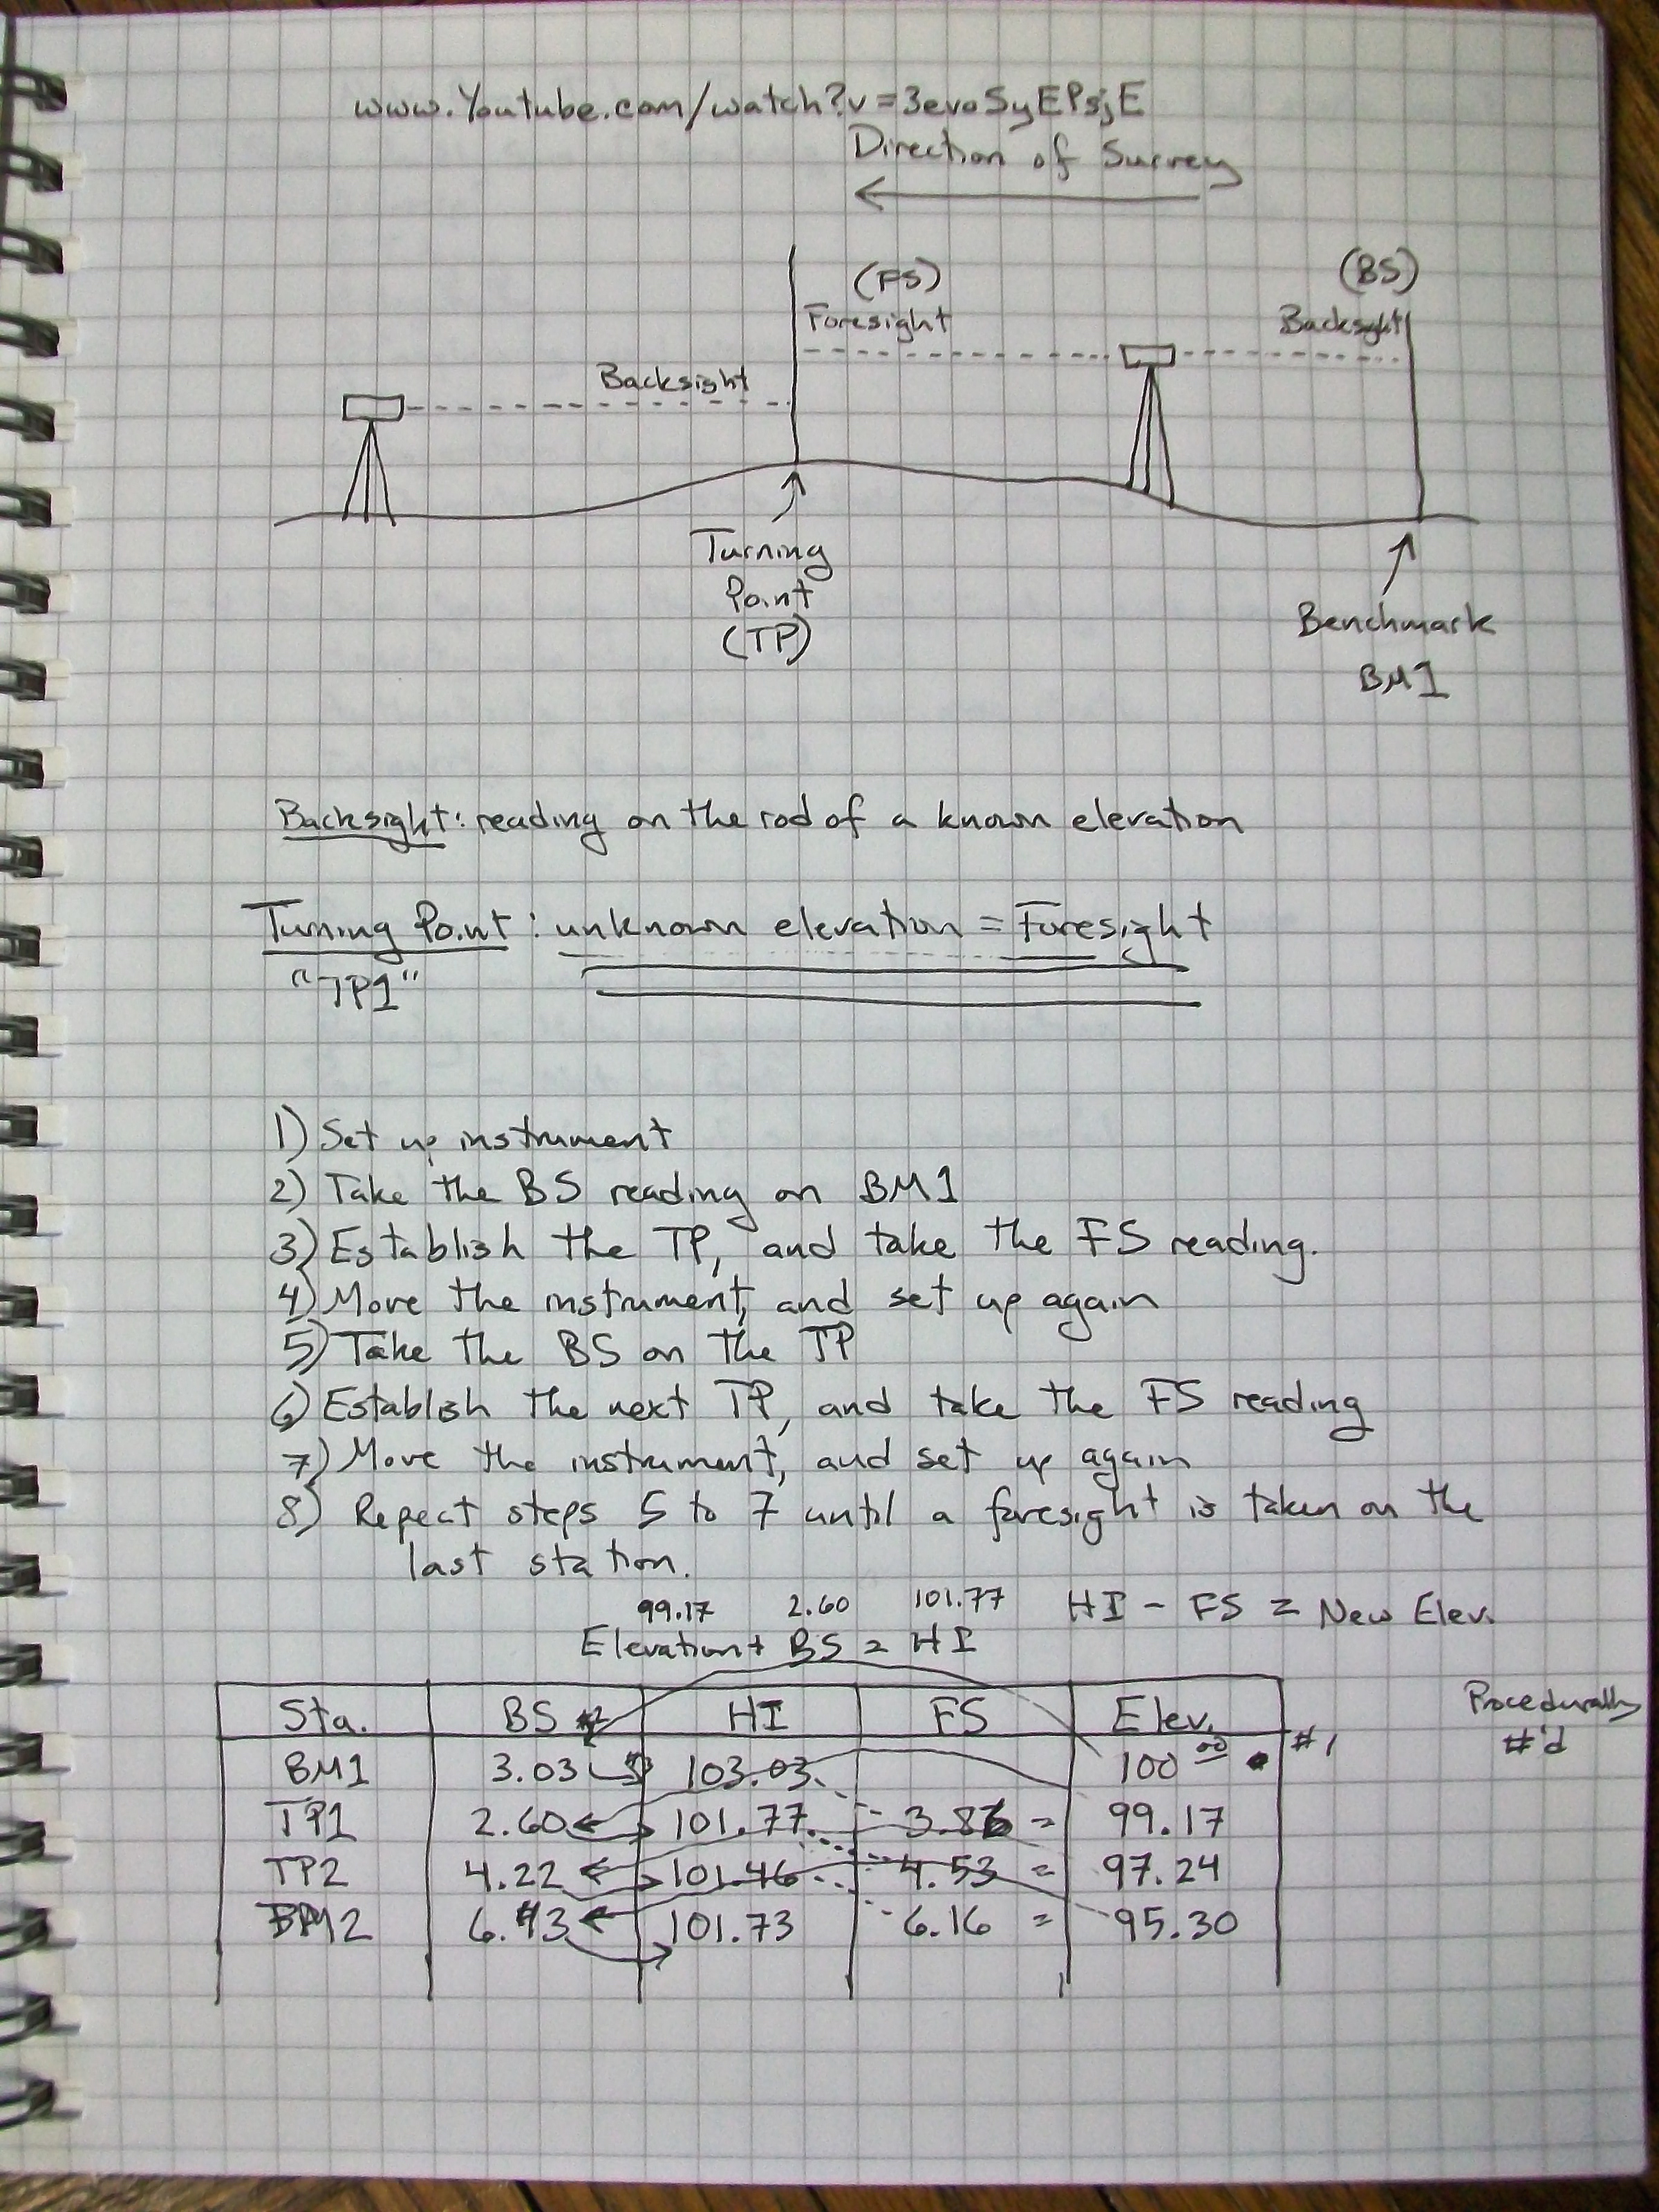 www.Youtube.com/watch?v=3evoSyEPsjE
Direction of Survey
(FS)
(BS)
Foresight
Backsight
Backsight
Turning
Point
(TP)
Benchmark
BM1
Backsight: reading on the rod of a known elevation
Turning Point: unknown elevation = Foresight
"TP1"
1) Set up instrument
2) Take the BS reading on BM1
3) Establish the TP, and take the FS reading.
4) Move the instrument, and set up again
5) Take the BS on the TP
6) Establish the next TP, and take the FS reading
7) Move the instrument, and set up again
8) Repeat steps 5 to 7 until a foresight is taken on the
last station.
99.17 2.60 101.77 HI - FS = New Elev.
Elevation + BS = HI
Sta. BS #2 HI FS Elev. Procedurally
#'d
BM1 3.03 #3 103.03 100 00 #1
TP1 2.60 101.77 3.86 = 99.17
TP2 4.22 101.46 4.53 = 97.24
BM2 6.43 101.73 6.16 = 95.30